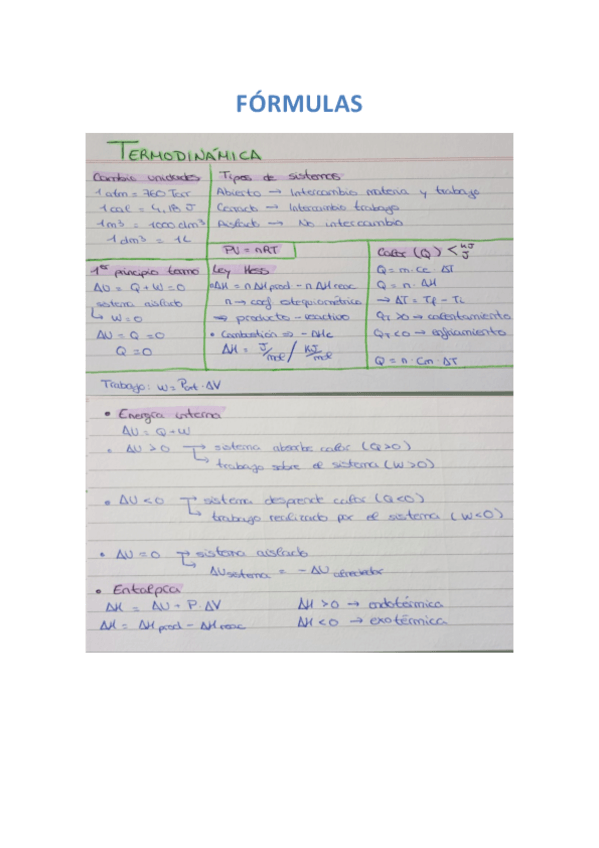 FÓRMULAS
TERMODINÁMICA
Cambio unidades
1 atm = 760 Torr
1 cal = 4,18 J
1 m³ = 1000 dm³
1 dm³ = 1L
Tipos de sistemas
Abierto → Intercambio materia y trabajo
Cerrado → Intercambio trabajo
Aislado → No intercambio
PV = nRT
Calor (Q) < KJ
J
1er principio termo
ΔU = Q + W = 0
sistema aislado
↳ W = 0
ΔU = Q = 0
Q = 0
Ley Hess
ΔH = n ΔH prod - n ΔH reac
n → coef estequiométrico
⇒ producto - reactivo
• Combustión ⇒ - ΔHc
ΔH = J/mol / KJ/mol
Q = m · ce · ΔT
Q = n · ΔH
→ ΔT = Tf - Ti
>0 → calentamiento
<0 → enfriamiento
Q = n · Cm · ΔT
Trabajo: W = Pext · ΔV
• Energía interna
ΔU = Q + W
• ΔU > 0 → sistema absorbe calor (Q>0)
↳ trabajo sobre el sistema (W>0)
• ΔU < 0 → sistema desprende calor (Q<0)
↳ trabajo realizado por el sistema (W<0)
• ΔU = 0 → sistema aislado
↳ ΔU sistema = - ΔU alrededor
• Entalpía
ΔH = ΔU + P · ΔV
ΔH > 0 → endotérmica
ΔH = ΔH prod - ΔH reac
ΔH < 0 → exotérmica